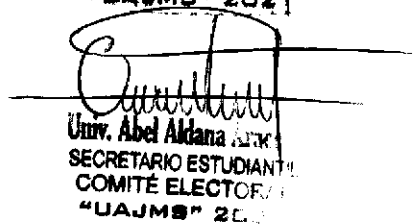 2021
Univ. Abel Aldana
SECRETARIO ESTUDIANTIL
COMITÉ ELECTORAL
"UAJMS" 2